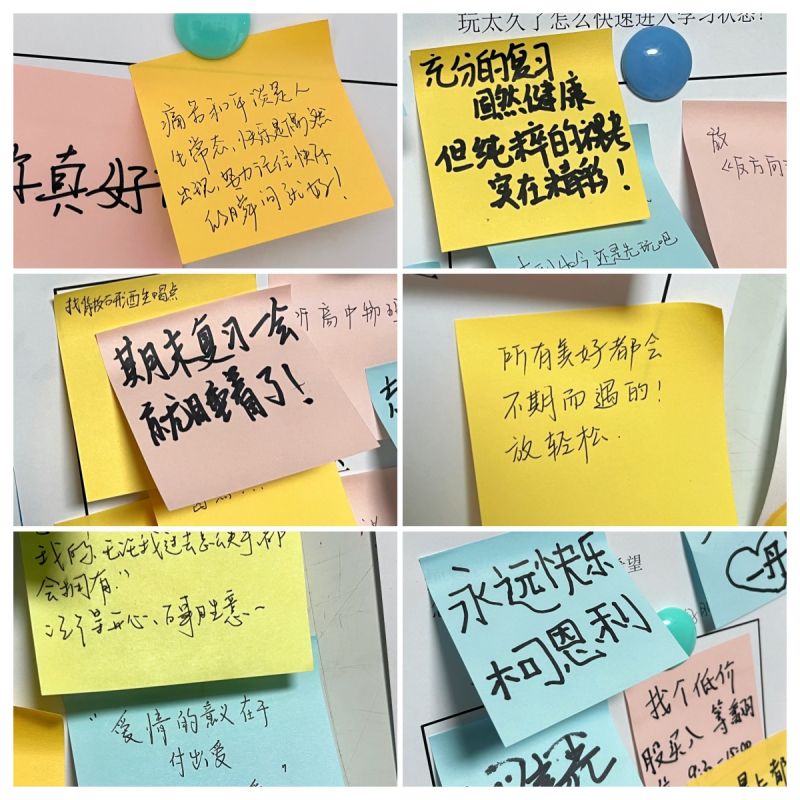 你真好
痛苦和平淡是人
生常态，快乐是偶然
出现，努力记住快乐
的瞬间就好！
玩太久了怎么快速进入学习状态？
充分的复习
固然健康
但纯粹的裸考
实在精彩！
放
《反方向
还是先玩吧
期末复习一会
就睡着了！
听高中物理
所有美好都会
不期而遇的！
放轻松.
我的，无论我过去怎么快乐都
会拥有。”
注享开心、百事胜意~
“爱情的意义在于
付出爱
”
永远快乐
柯恩利
望
找个低价
股买入 等翻